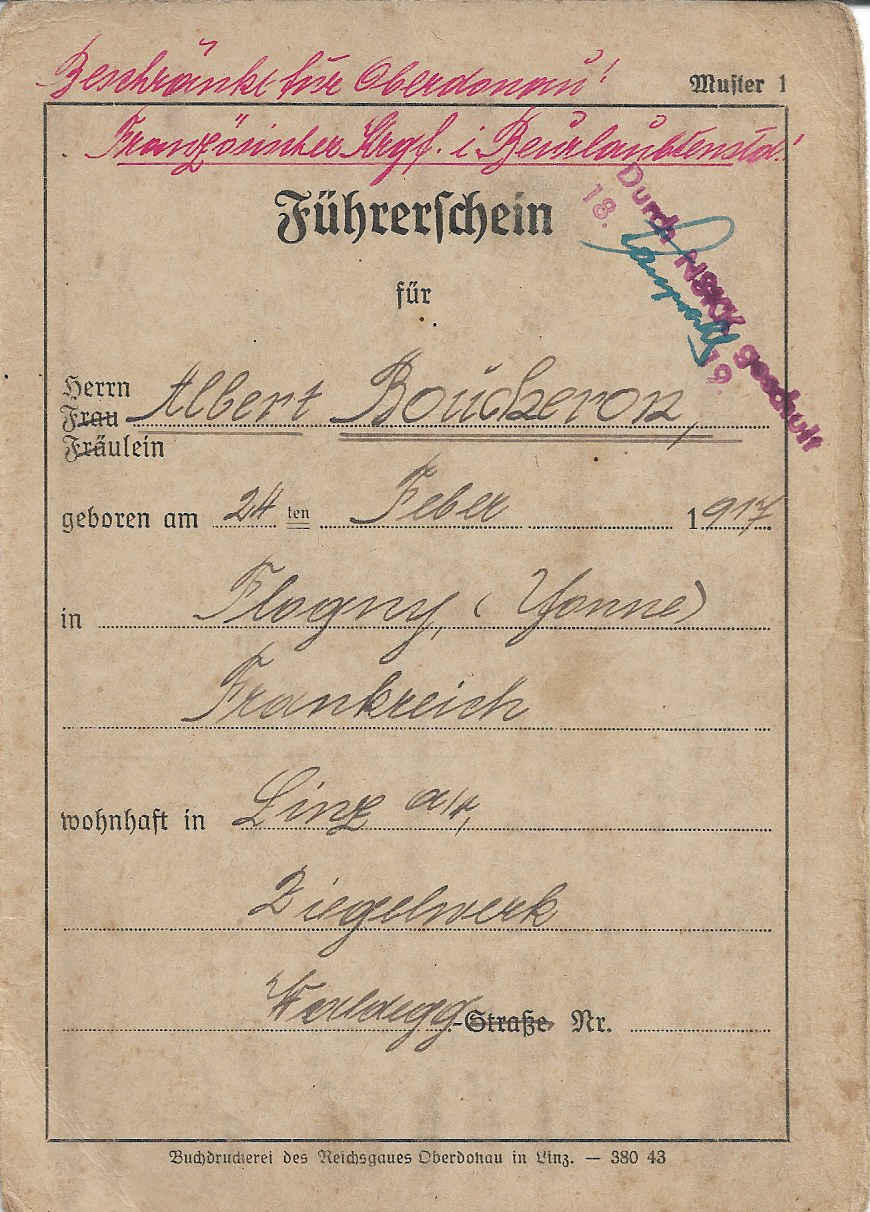 Beschränkt für Oberdonau!
Muster 1
Französischer Krgf. i. Beurlaubtenstd.!
Führerschein
Durch NSKK geschult
18. 19
für
Herrn
Frau Albert Boucheron,
Fräulein
geboren am 24 ten Feber 1917
in Flogny, (Yonne)
Frankreich
wohnhaft in Linz a/D,
Ziegelwerk
Waldegg-Straße Nr.
Buchdruckerei des Reichsgaues Oberdonau in Linz. — 380 43